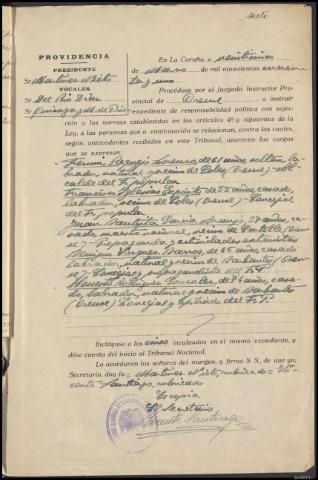 siete
PROVIDENCIA
PRESIDENTE
Sr. Martínez Nieto
VOCALES
Sr. Del Río Díaz
Sr.
En La Coruña, a veintiuno
de Marzo de mil novecientos cuaren
ta y uno
Procédase por el Juzgado Instructor Pro
vincial de Orense a instruir
expediente de responsabilidad política con sujec-
ción a las normas establecidas en los artículos 45 y siguientes de la
Ley, a las personas que a continuación se relacionan, contra las cuales,
según antecedentes recibidos en este Tribunal, aparecen los cargos
que se expresan:
Lorenzo, de 61 años, soltero, la-
brador, natural y vecino de Coles (Orense) - Al-
calde del F. popular
Francisco Iglesias Expósito de 55 años, casado,
labrador, vecino de Coles (Orense) - Concejal
del F. popular
Juan Bautista García Araujo, 37 años, ca-
sado, maestro nacional, vecino de Castelle (Oren-
se) - Propaganda y actividades
Benigno Barros, de 45 años, casado
labrador, natural y vecino de (Oren
se) - Concejal y propagandista del F. P.
Rodríguez González, de 76 años, casa-
do, labrador, natural y vecino de
(Orense) Concejal y afiliado del F. P.
Inclúyase a los cinco inculpados en el mismo expediente, y
dése cuenta del inicio al Tribunal Nacional.
Lo acordaron los señores del margen, y firma S. S., de que yo,
Secretario, doy fe = Martínez Nieto, rubricado = Vi-
cente Santiago, rubricado
Es copia
El Secretario
Vicente Santiago